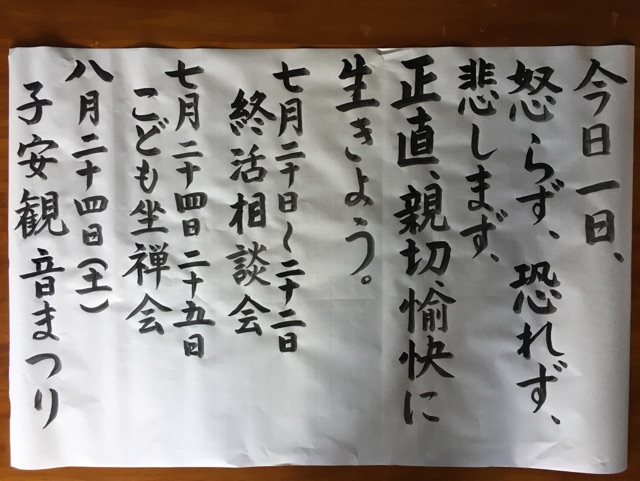 今日一日、
怒らず、恐れず、
悲しまず、
正直、親切、愉快に
生きよう。
七月二十日〜二十二日
終活相談会
七月二十四日二十五日
こども坐禅会
八月二十四日(土)
子安観音まつり